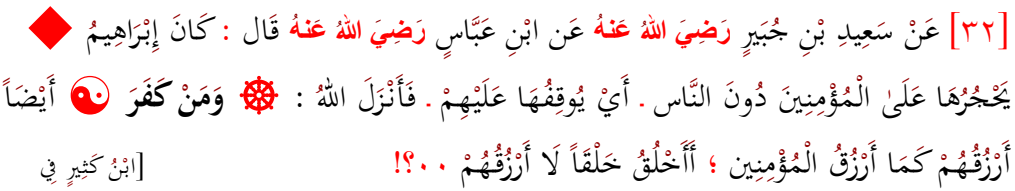 [٣٢] عَنْ سَعِيدِ بْنِ جُبَيرٍ رَضِيَ اللهُ عَنهُ عَن ابْنِ عَبَّاسٍ رَضِيَ اللهُ عَنهُ قَال : كَانَ إِبْرَاهِيمُ ◆
يَحْجُرُهَا عَلَىٰ الْمُؤْمِنِينَ دُونَ النَّاس . أَيْ يُوقِفُهَا عَلَيْهِمْ . فَأَنْزَلَ اللهُ : ☸ وَمَنْ كَفَرَ ☯ أَيْضَاً
أَرْزُقُهُمْ كَمَا أَرْزُقُ الْمُؤْمِنِين ؛ أَأَخْلُقُ خَلْقَاً لَا أَرْزُقُهُمْ ٠٠؟! [ابْنُ كَثِيرٍ فِي